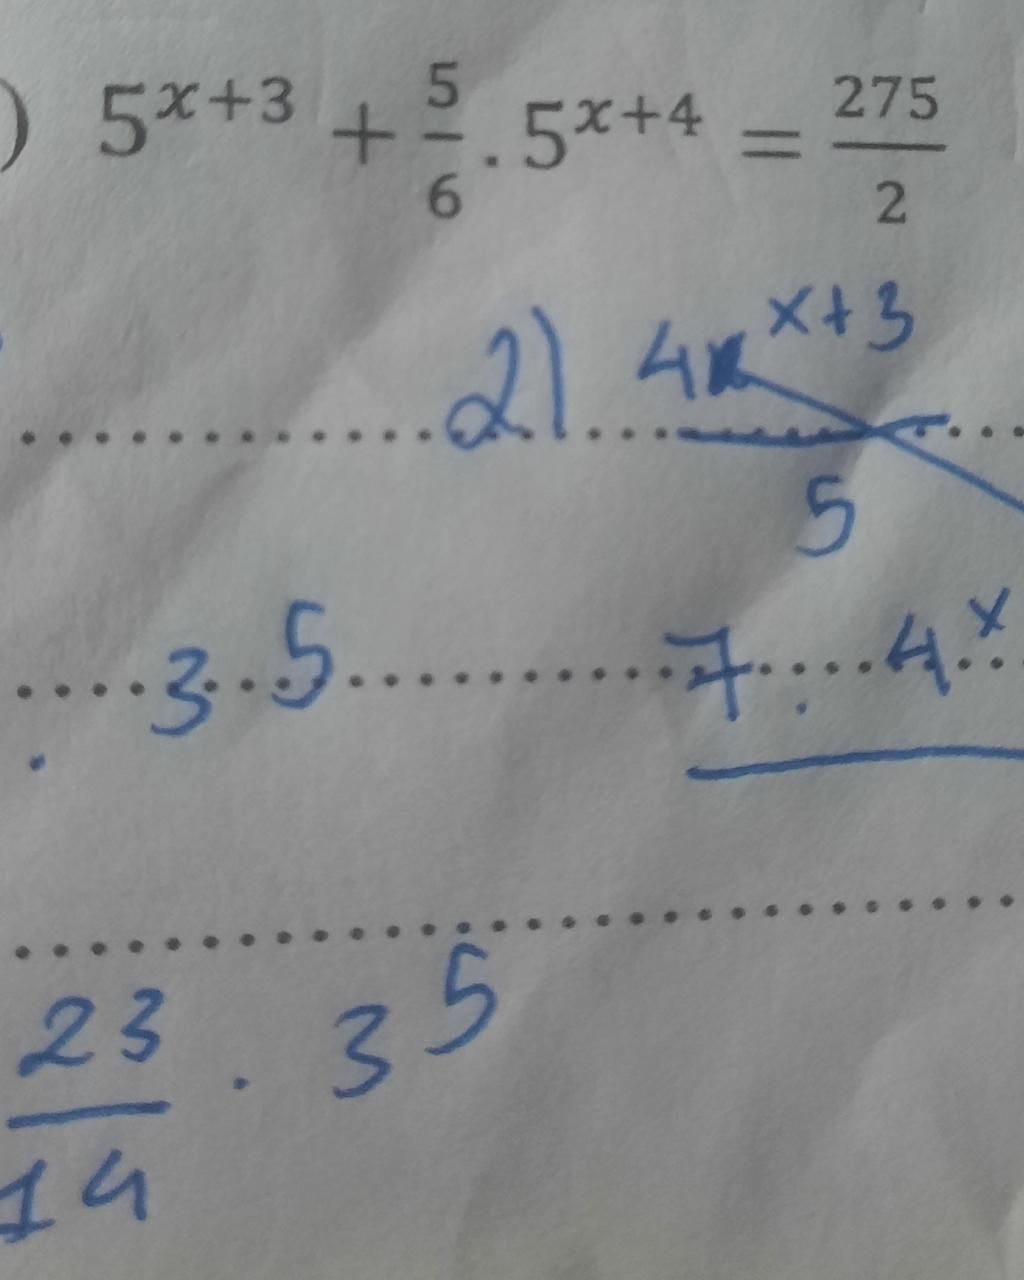 ) 5^{x+3} + \frac{5}{6} . 5^{x+4} = \frac{275}{2}
2) \frac{4^{x+3}}{5}
. 3^5 7 . 4^x
\frac{23}{14} . 3^5